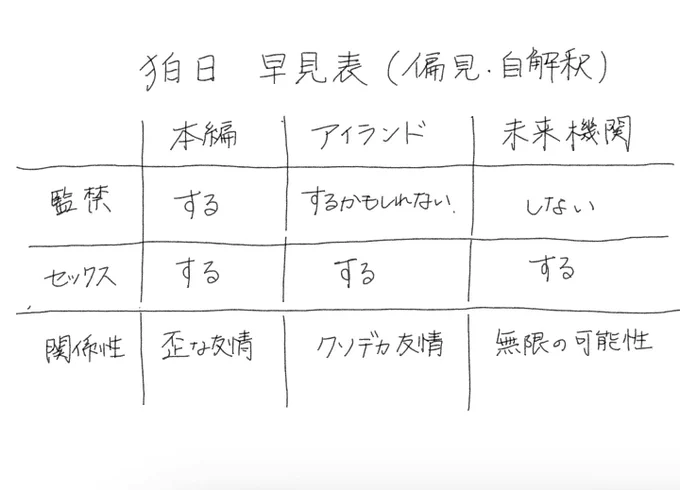 狛日 早見表(偏見・自解釈)
本編 アイランド 未来機関
監禁 する するかもしれない. しない
セックス する する する
関係性 歪な友情 クソデカ友情 無限の可能性